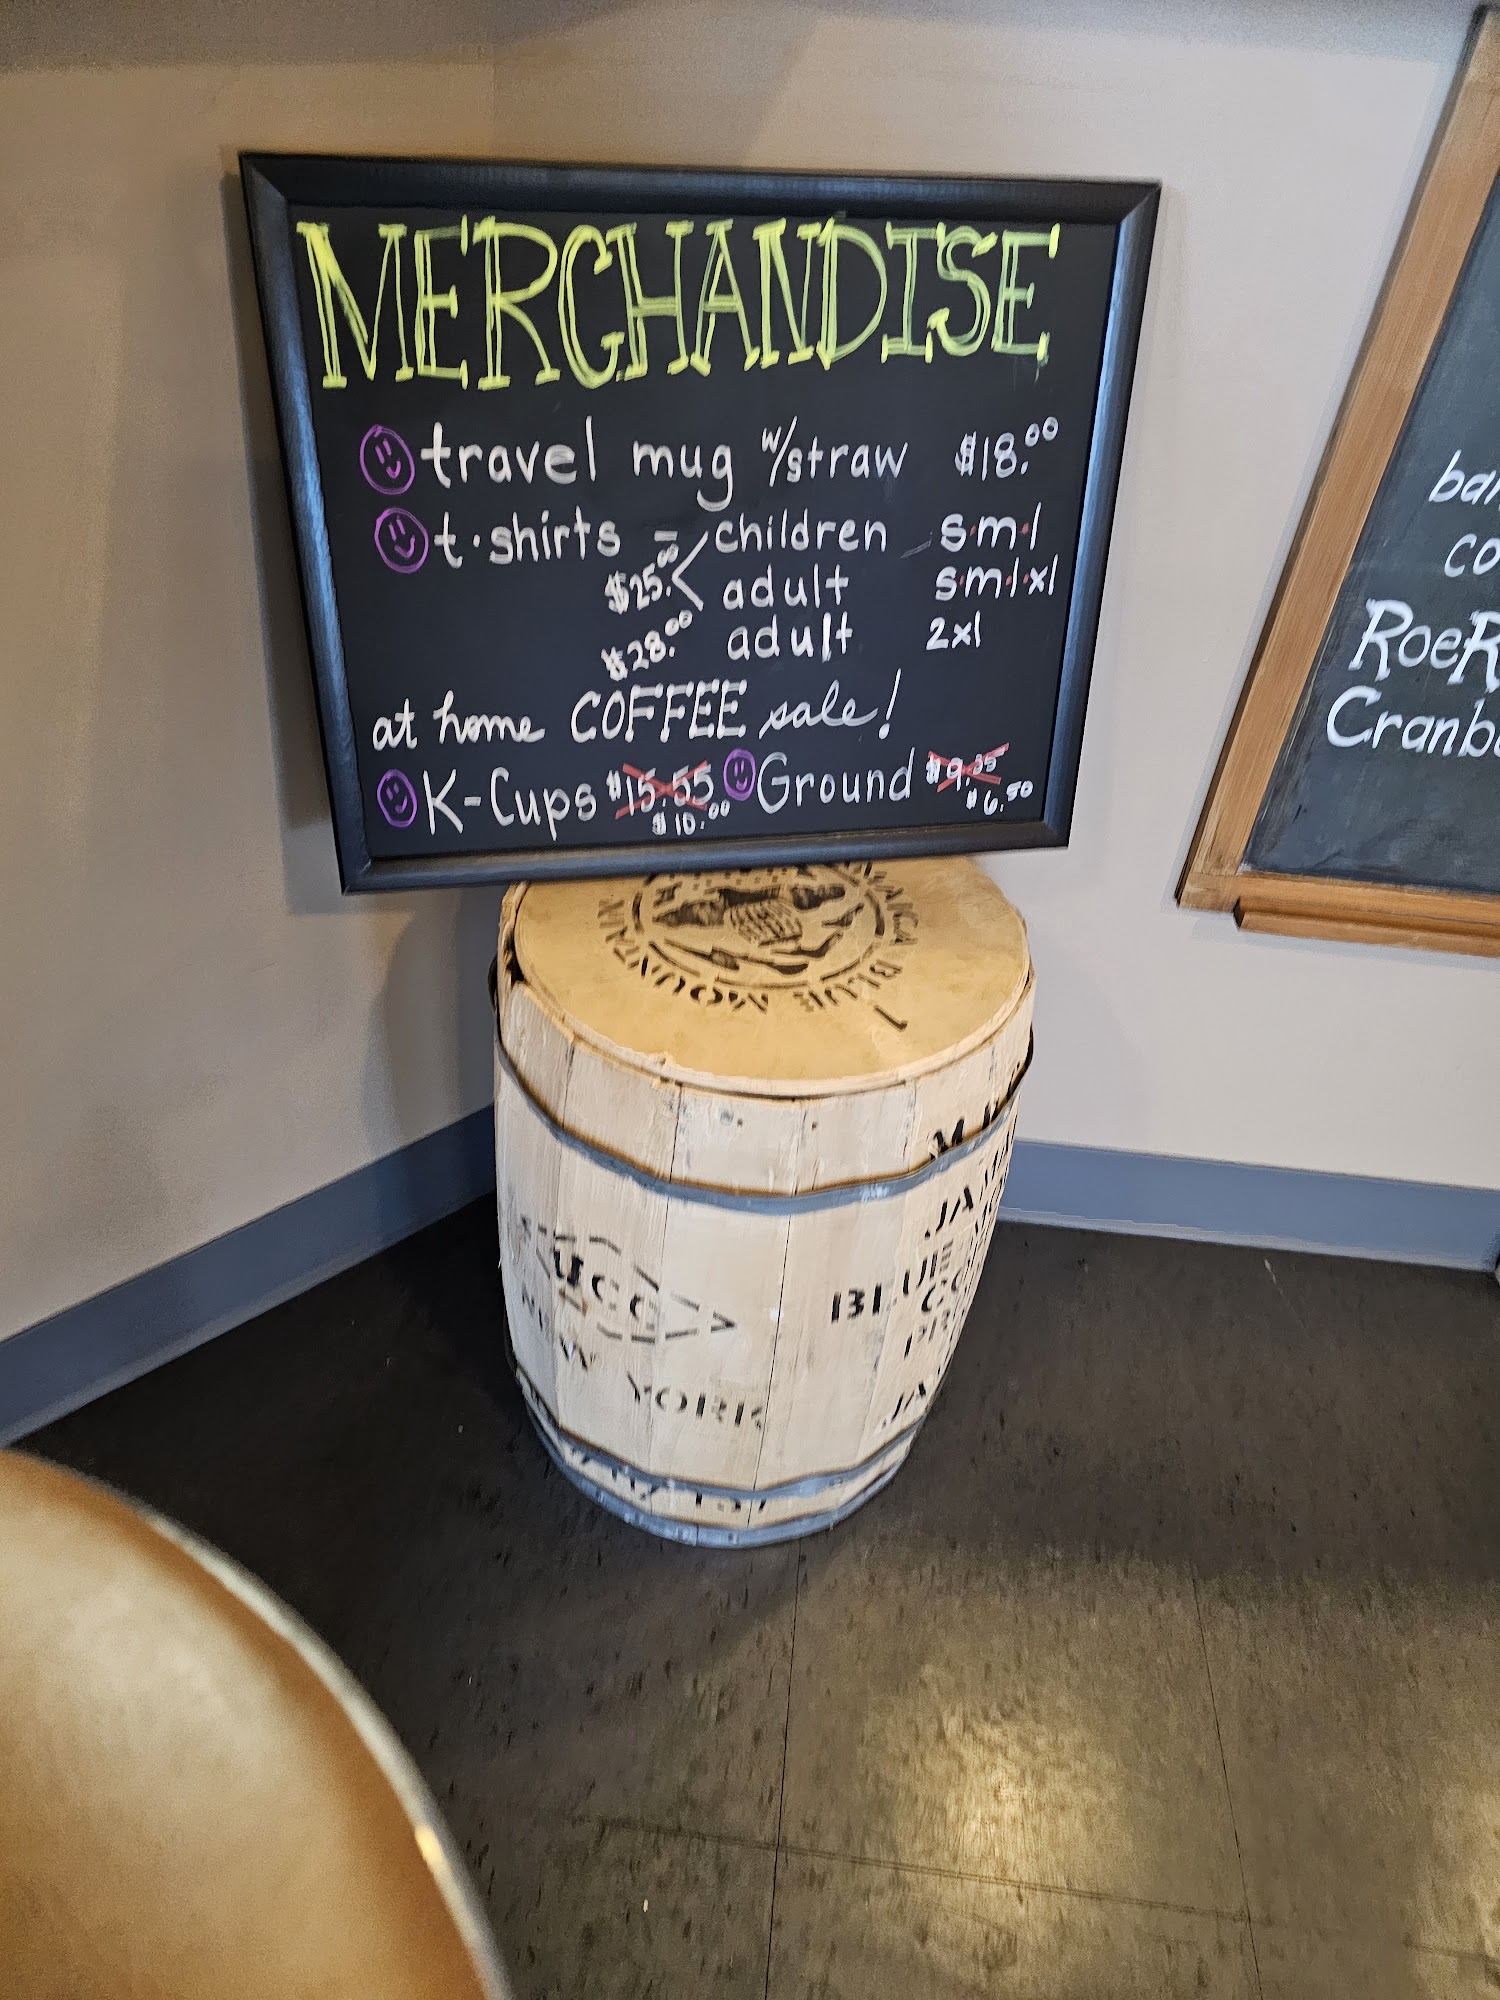 MERCHANDISE
travel mug w/straw $18.00
t·shirts - children s·m·l
$25.00 adult s·m·l·xl
$28.00 adult 2xl
at home COFFEE sale!
K-Cups $15.55 Ground $9.35
$10.00 $6.50
RoeR
Cranb
MOUNTAIN
BLUE
NEW YORK
BLUE